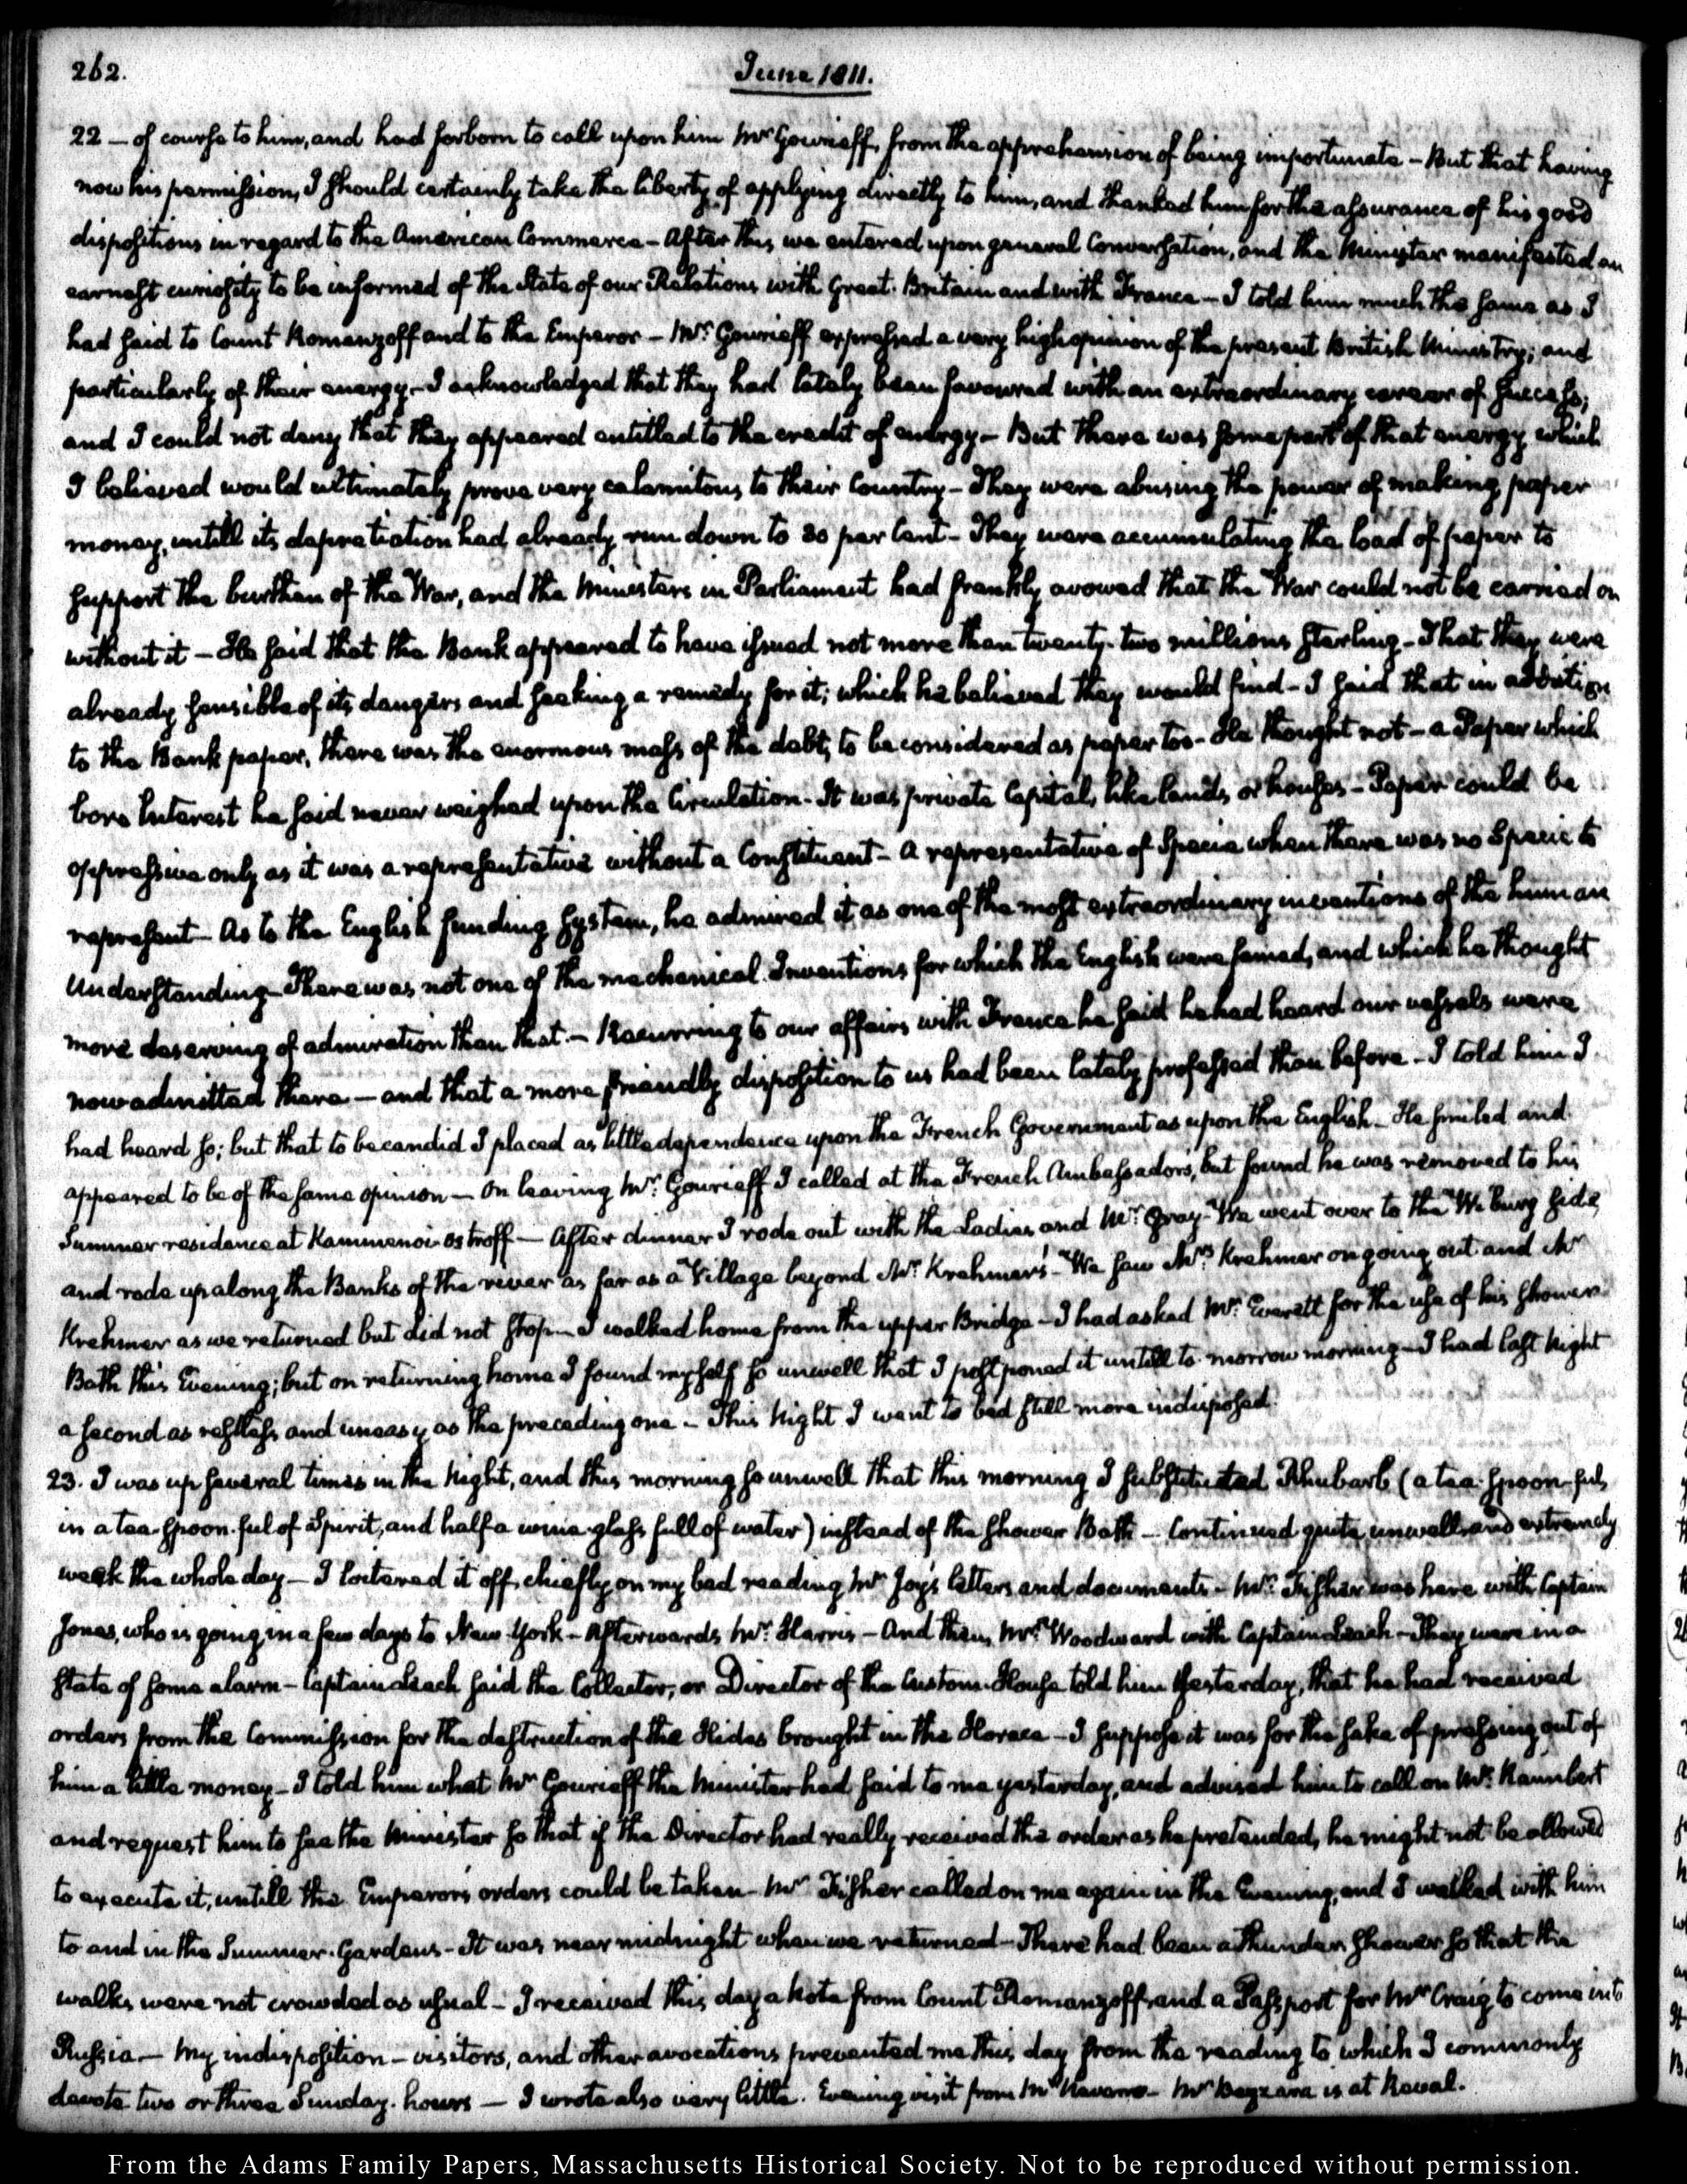 262.
June 1811.
22 — of course to him, and had forborn to call upon him Mr Gourieff, from the apprehension of being importunate — But that having
now his permission, I should certainly take the liberty of applying directly to him, and thanked him for the assurance of his good
dispositions in regard to the American Commerce — After this, we entered upon general Conversation, and the Minister manifested an
earnest curiosity to be informed of the State of our Relations with Great Britain and with France — I told him much the same as I
had said to Count Romanzoff and to the Emperor — Mr Gourieff expressed a very high opinion of the present British Ministry; and
particularly of their energy — I acknowledged that they had lately been favoured with an extraordinary career of success;
and I could not deny that they appeared entitled to the credit of energy — But there was some part of that energy which
I believed would ultimately prove very calamitous to their Country — They were abusing the power of making paper
money, untill its depretiation had already run down to 30 per Cent — They were accumulating the load of paper to
support the burthen of the War, and the Ministers in Parliament had frankly avowed that the War could not be carried on
without it — He said that the Bank appeared to have issued not more than twenty-two millions Sterling — That they were
already sensible of its dangers and seeking a remedy for it; which he believed they would find — I said that in addition
to the Bank paper, there was the enormous mass of the debt, to be considered as paper too — He thought not — a Paper which
bore Interest he said never weighed upon the Circulation — It was private Capital, like lands, or houses — Paper could be
oppressive only as it was a representative without a Constituent — A representative of Specie when there was no Specie to
represent — As to the English funding System, he admired it as one of the most extraordinary inventions of the human
Understanding — There was not one of the mechanical Inventions for which the English were famed, and which he thought
more deserving of admiration than that. — Recurring to our affairs with France he said he had heard our vessels were
now admitted there — and that a more friendly disposition to us had been lately professed than before — I told him I
had heard so; but that to be candid I placed as little dependence upon the French Government as upon the English — He smiled and
appeared to be of the same opinion — On leaving Mr: Gourieff I called at the French Ambassador's, but found he was removed to his
Summer residence at Kammenoi-ostroff — After dinner I rode out with the Ladies and Mr: Gray — We went over to the Wiburg side,
and rode up along the Banks of the river as far as a Village beyond Mr: Krehmer's — We saw Mrs: Krehmer on going out and Mr
Krehmer as we returned but did not stop — I walked home from the upper Bridge — I had asked Mr: Everett for the use of his Shower
Bath this Evening; but on returning home I found myself so unwell that I postponed it untill to-morrow morning — I had last Night
a second as restless and uneasy as the preceding one — This Night I went to bed still more indisposed.
23. I was up several times in the Night, and this morning so unwell that this morning I substituted Rhubarb (a tea-spoon-ful,
in a tea-spoon-ful of Spirit, and half a wine-glass full of water) instead of the Shower Bath — Continued quite unwell and extremely
weak the whole day — I loitered it off, chiefly on my bed reading Mr Joy's letters and documents — Mr: Fisher was here with Captain
Jones, who is going in a few days to New-York — Afterwards Mr: Harris — And then, Mr: Woodward with Captain Leach — They were in a
state of some alarm — Captain Leach said the Collector, or Director of the Custom-House told him yesterday, that he had received
orders from the Commission for the destruction of the Hides brought in the Horace — I suppose it was for the sake of pressing out of
him a little money — I told him what Mr Gourieff the Minister had said to me yesterday, and advised him to call on Mr: Raimbert
and request him to see the Minister so that if the Director had really received the order as he pretended, he might not be allowed
to execute it, untill the Emperor's orders could be taken — Mr Fisher called on me again in the Evening, and I walked with him
to and in the Summer-Gardens — It was near midnight when we returned — There had been a thunder shower so that the
walks were not crowded as usual — I received this day a Note from Count Romanzoff, and a Passport for Mr Craig to come into
Russia — My indisposition — visitors, and other avocations prevented me this day from the reading to which I commonly
devote two or three Sunday-hours — I wrote also very little. Evening visit from Mr Navarro — Mr Bezerra is at Reval.
From the Adams Family Papers, Massachusetts Historical Society. Not to be reproduced without permission.